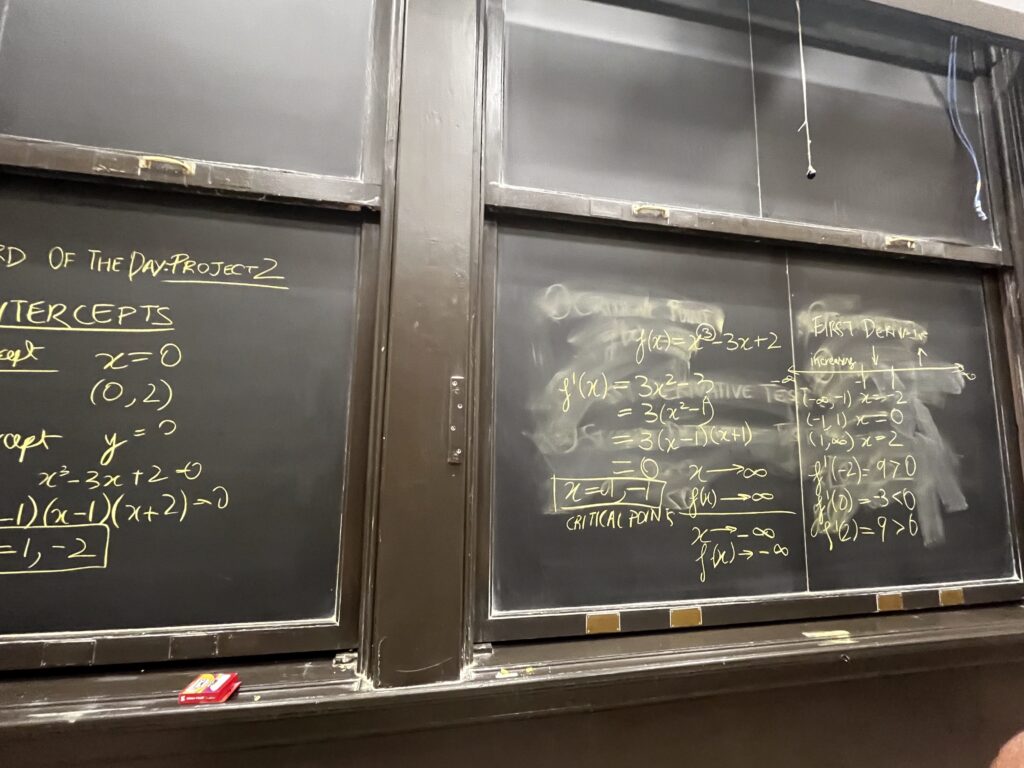 RD OF THE DAY: PROJECT 2
NTERCEPTS
cept x = 0
(0, 2)
rcept y = 0
x³ - 3x + 2 = 0
-1)(x-1)(x+2) = 0
= 1, -2
f(x) = x³ - 3x + 2
f'(x) = 3x² - 3
= 3(x² - 1)
= 3(x-1)(x+1)
= 0
x = 1, -1
CRITICAL POINTS
x → ∞
f(x) → ∞
x → -∞
f(x) → -∞
FIRST
increasing ↓ ↑
-∞ -1 1 ∞
(-∞, -1) x = -2
(-1, 1) x = 0
(1, ∞) x = 2
f'(-2) = 9 > 0
f'(0) = -3 < 0
f'(2) = 9 > 0